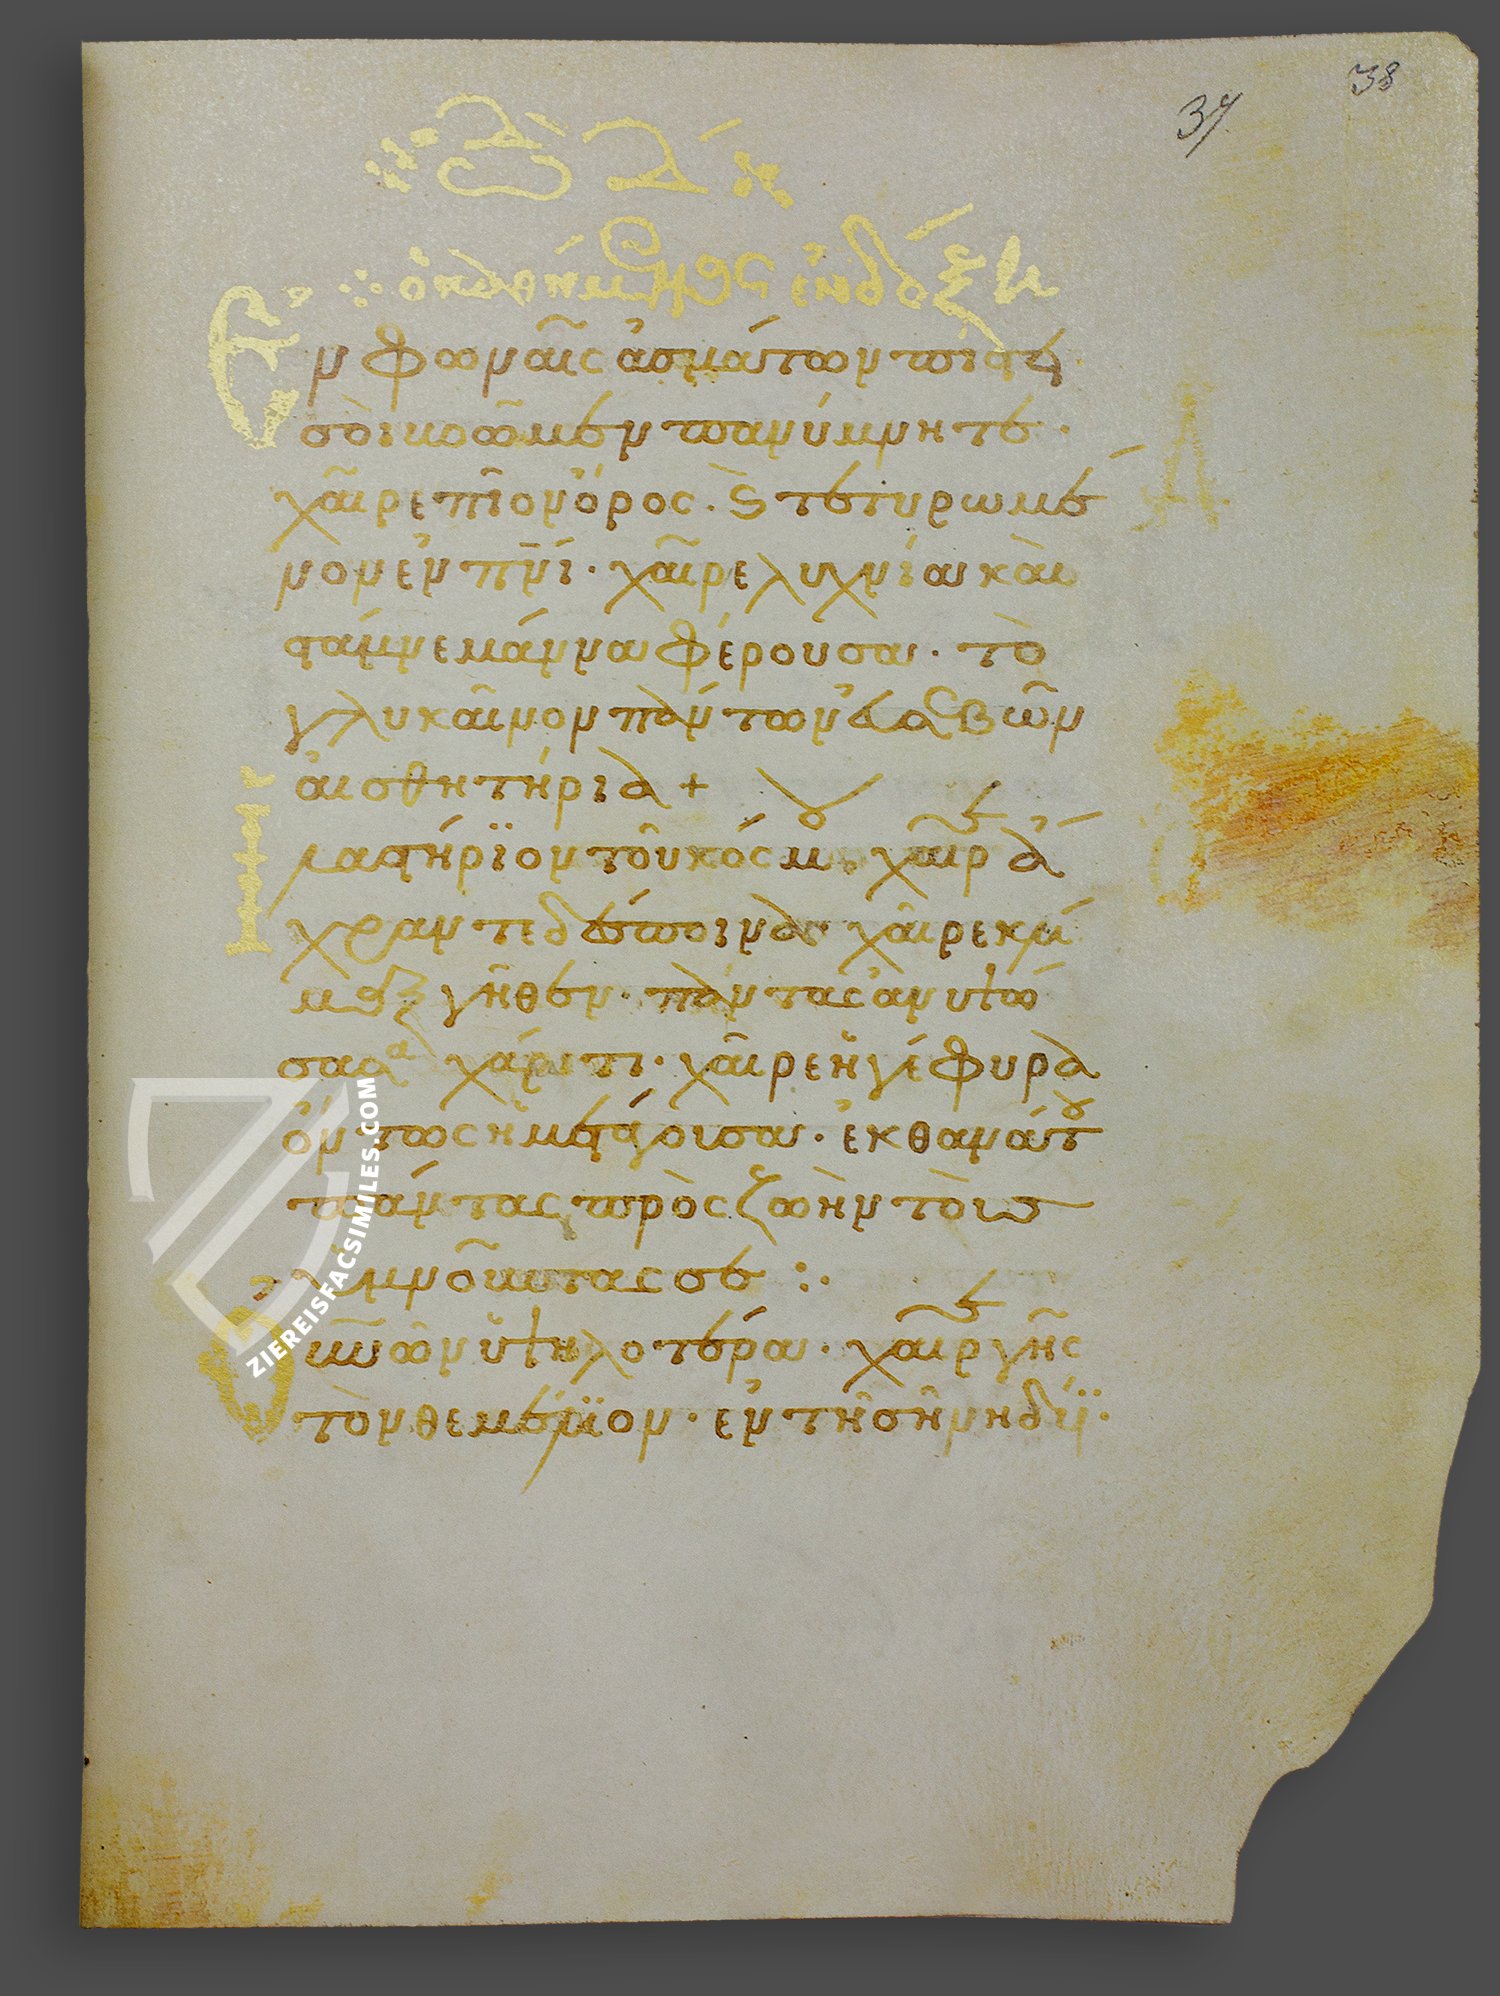 38
37
ᾠδὴ δ´
ὁ καθήμενος ἐν δόξῃ
Ἐν φωναῖς ἀσμάτων πίστει
σοὶ βοῶμεν πανύμνητε·
χαῖρε πῖον ὄρος· καὶ τετυρωμέ
νον ἐν πνι· χαῖρε λυχνία καὶ
στάμνε μάννα φέρουσα· τὸ
γλυκαῖνον πάντων εὐσεβῶν
αἰσθητήρια +
Ἱλαστήριον τοῦ κόσμου χαῖρε ἄ
χραντε δέσποινα χαῖρε κλί
μαξ γῆθεν· πάντας ἀνυψώ
σασα χάριτι· χαῖρε ἡ γέφυρα
ὄντως ἡ μετάγουσα· ἐκ θανάτου
πάντας πρὸς ζωὴν τοὺς
ὑμνοῦντας σε :·
Οὐνῶν ὑψηλοτέρα· χαῖρε γῆς
τὸν θεμέλιον· ἐν τῆ σῆ νηδύϊ·
ZIEREISFACSIMILES.COM